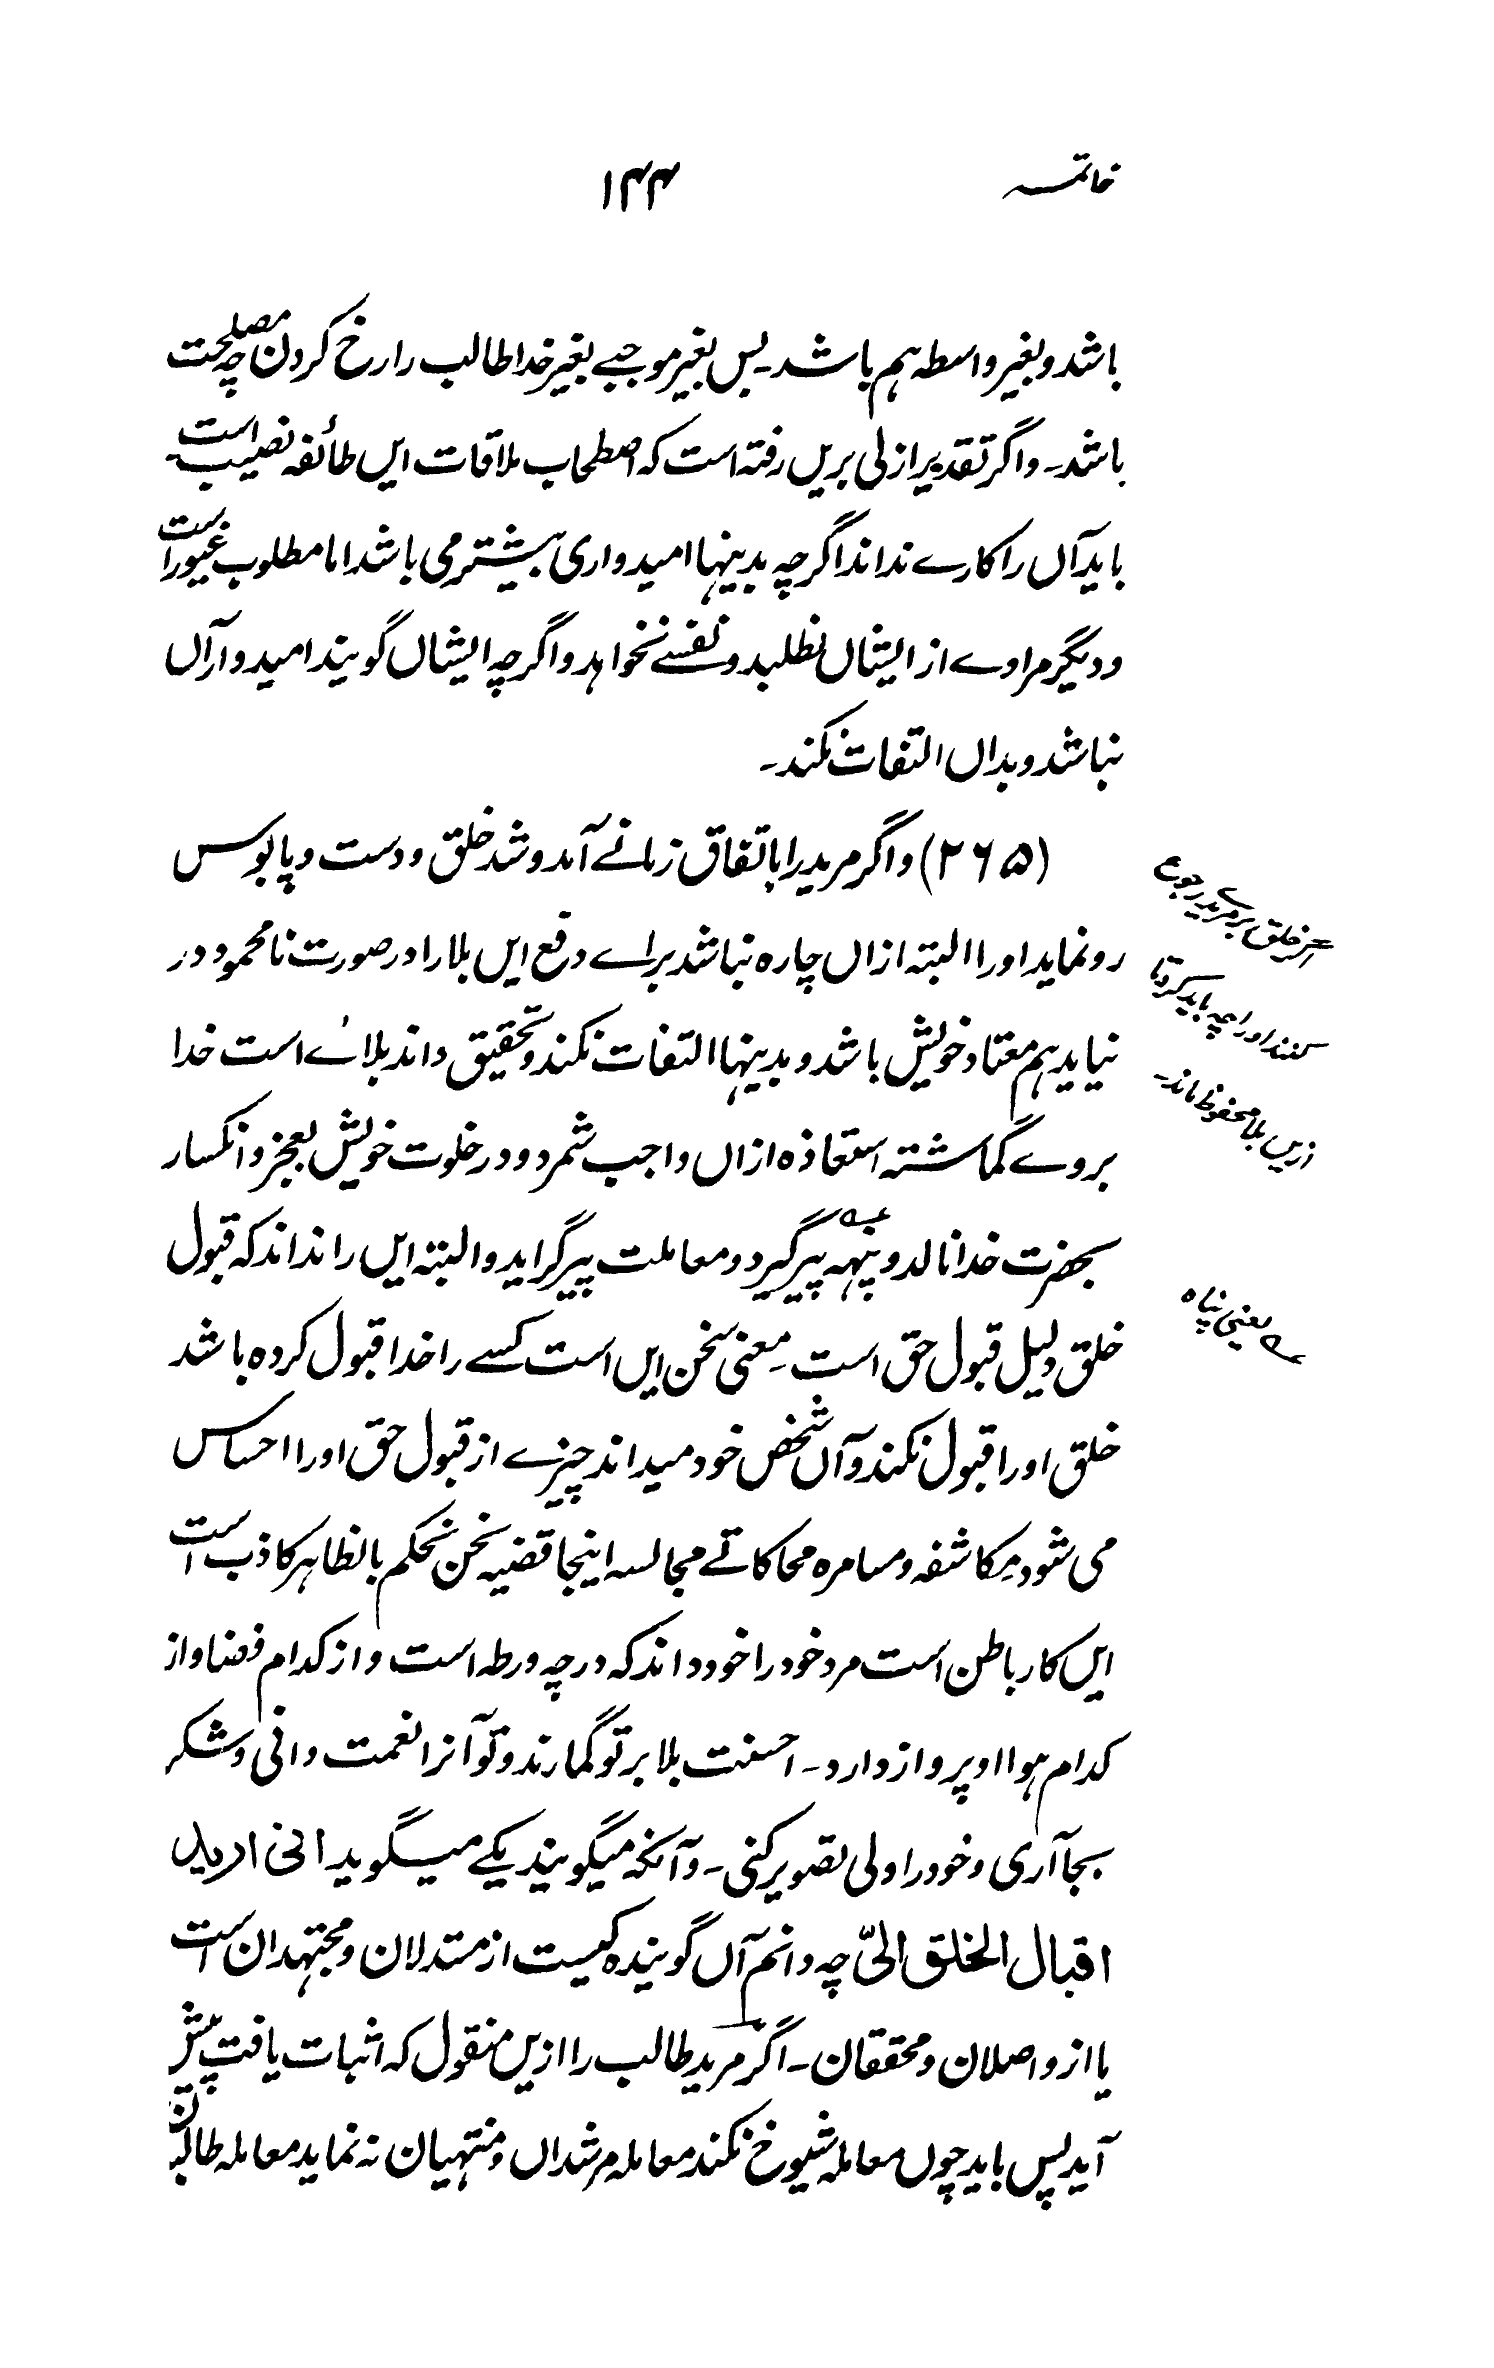 خاتمہ
۱۴۴
باشد و بغیر واسطہ ہم باشد۔ پس بغیر موجبے بغیر خدا طالب را رخ کردن چہ مصلحت
باشد۔ و اگر تقدیر ازلی بریں رفتہ است کہ اصطحاب ملاقات ایں طائفہ نصیب است
باید آں را کارے نداند اگرچہ بدینہا امیدواری بیشتر می باشد اما مطلوب غیور است
و دیگر مرادے از ایشاں نطلبد و نفسے نخواہد و اگرچہ ایشاں گویند امیدوار آں
نباشد و بداں التفات نکند۔
(۲۶۵) و اگر مرید را باتفاق زمانے آمد و شد خلق و دست و پا بوس
رو نماید او را البتہ ازاں چارہ نباشد براے دفع ایں بلا را در صورت نامحمود در
نیاید ہم معتاد خویش باشد و بدینہا التفات نکند و تحقیق داند بلائے است خدا
بروے گماشتہ استعاذہ ازاں واجب شمرد و در خلوت خویش بعجز و انکسار
بحضرت خدا نالد و پنہہ عہ پیر گیرد و معاملت پیر گراید و البتہ ایں را نداند کہ قبول
خلق دلیل قبول حق است۔ معنی سخن ایں است کسے را خدا قبول کردہ باشد
خلق او را قبول نکند و آں شخص خود میداند چیزے از قبول حق او را احساس
می شود مکاشفہ و مسامرہ محاکاتے مجالسہ اینجا قضیہ نحن نحکم بالظاہر کاذب است
ایں کار باطن است مرد خود را خود داند کہ در چہ ورطہ است و از کدام فضا و از
کدام ہوا او پرواز دارد۔ احسنت بلا بر تو گمارند و تو آنرا نعمت دانی و شکر
بجا آری و خود را ولی تصویر کنی۔ و آنکہ میگویند یکے میگوید انی ادیاں
اقبال الخلق الیّ چہ دانم آں گویندہ کیست از مستدلان و مجتہدان است
یا از واصلان و محققان۔ اگر مرید طالب را ازیں منقول کہ اثبات یافت پیش
آید پس باید چوں معاملہ شیوخ نکند معاملہ مرشداں و منتہیان نہ نماید معاملہ طالبان
اگر خلق بر مریدے رجوع
کنند او را چہ باید کرد تا
ازیں بلا محفوظ ماند۔
عہ یعنی پناہ